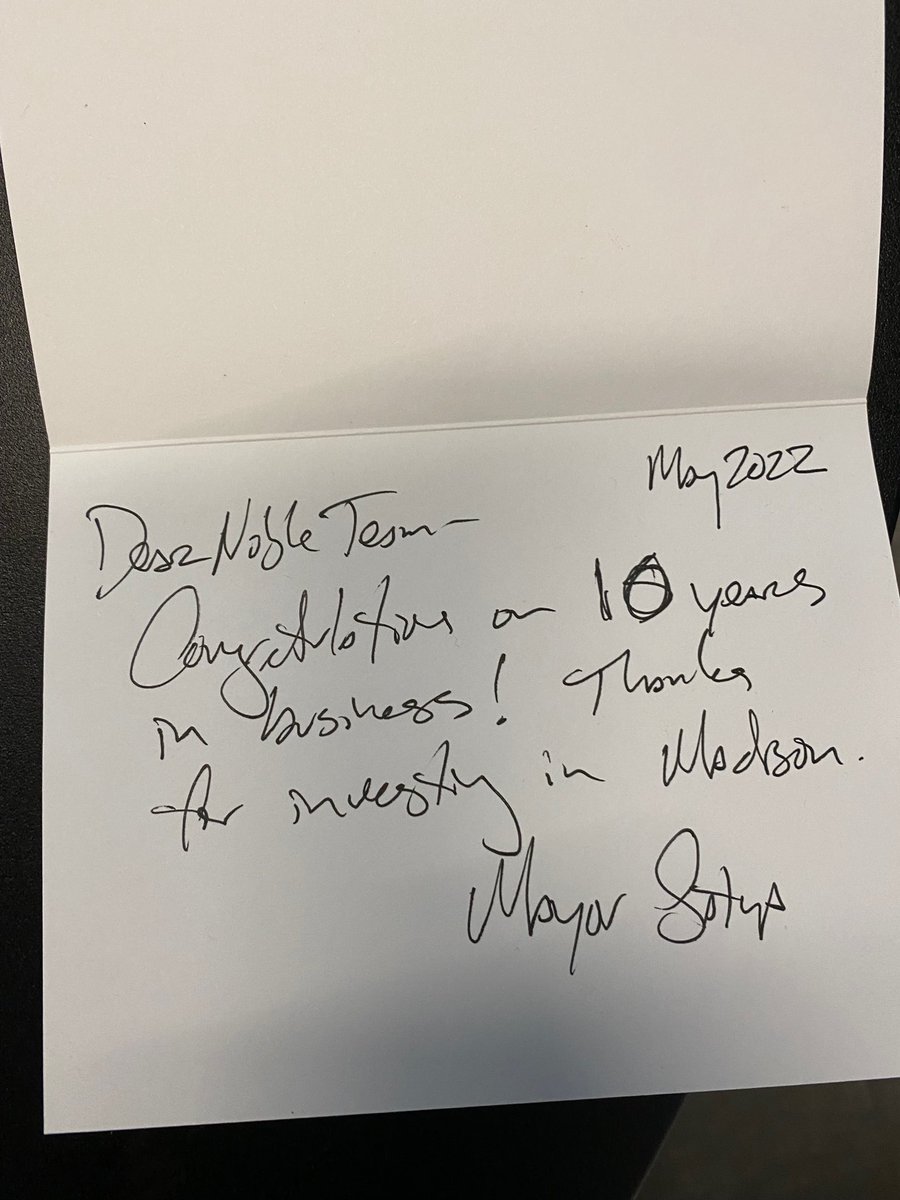 May 2022
Dear Noble Team-
Congratulations on 10 years
in business! Thanks
for investing in Madison.
Mayor Satya